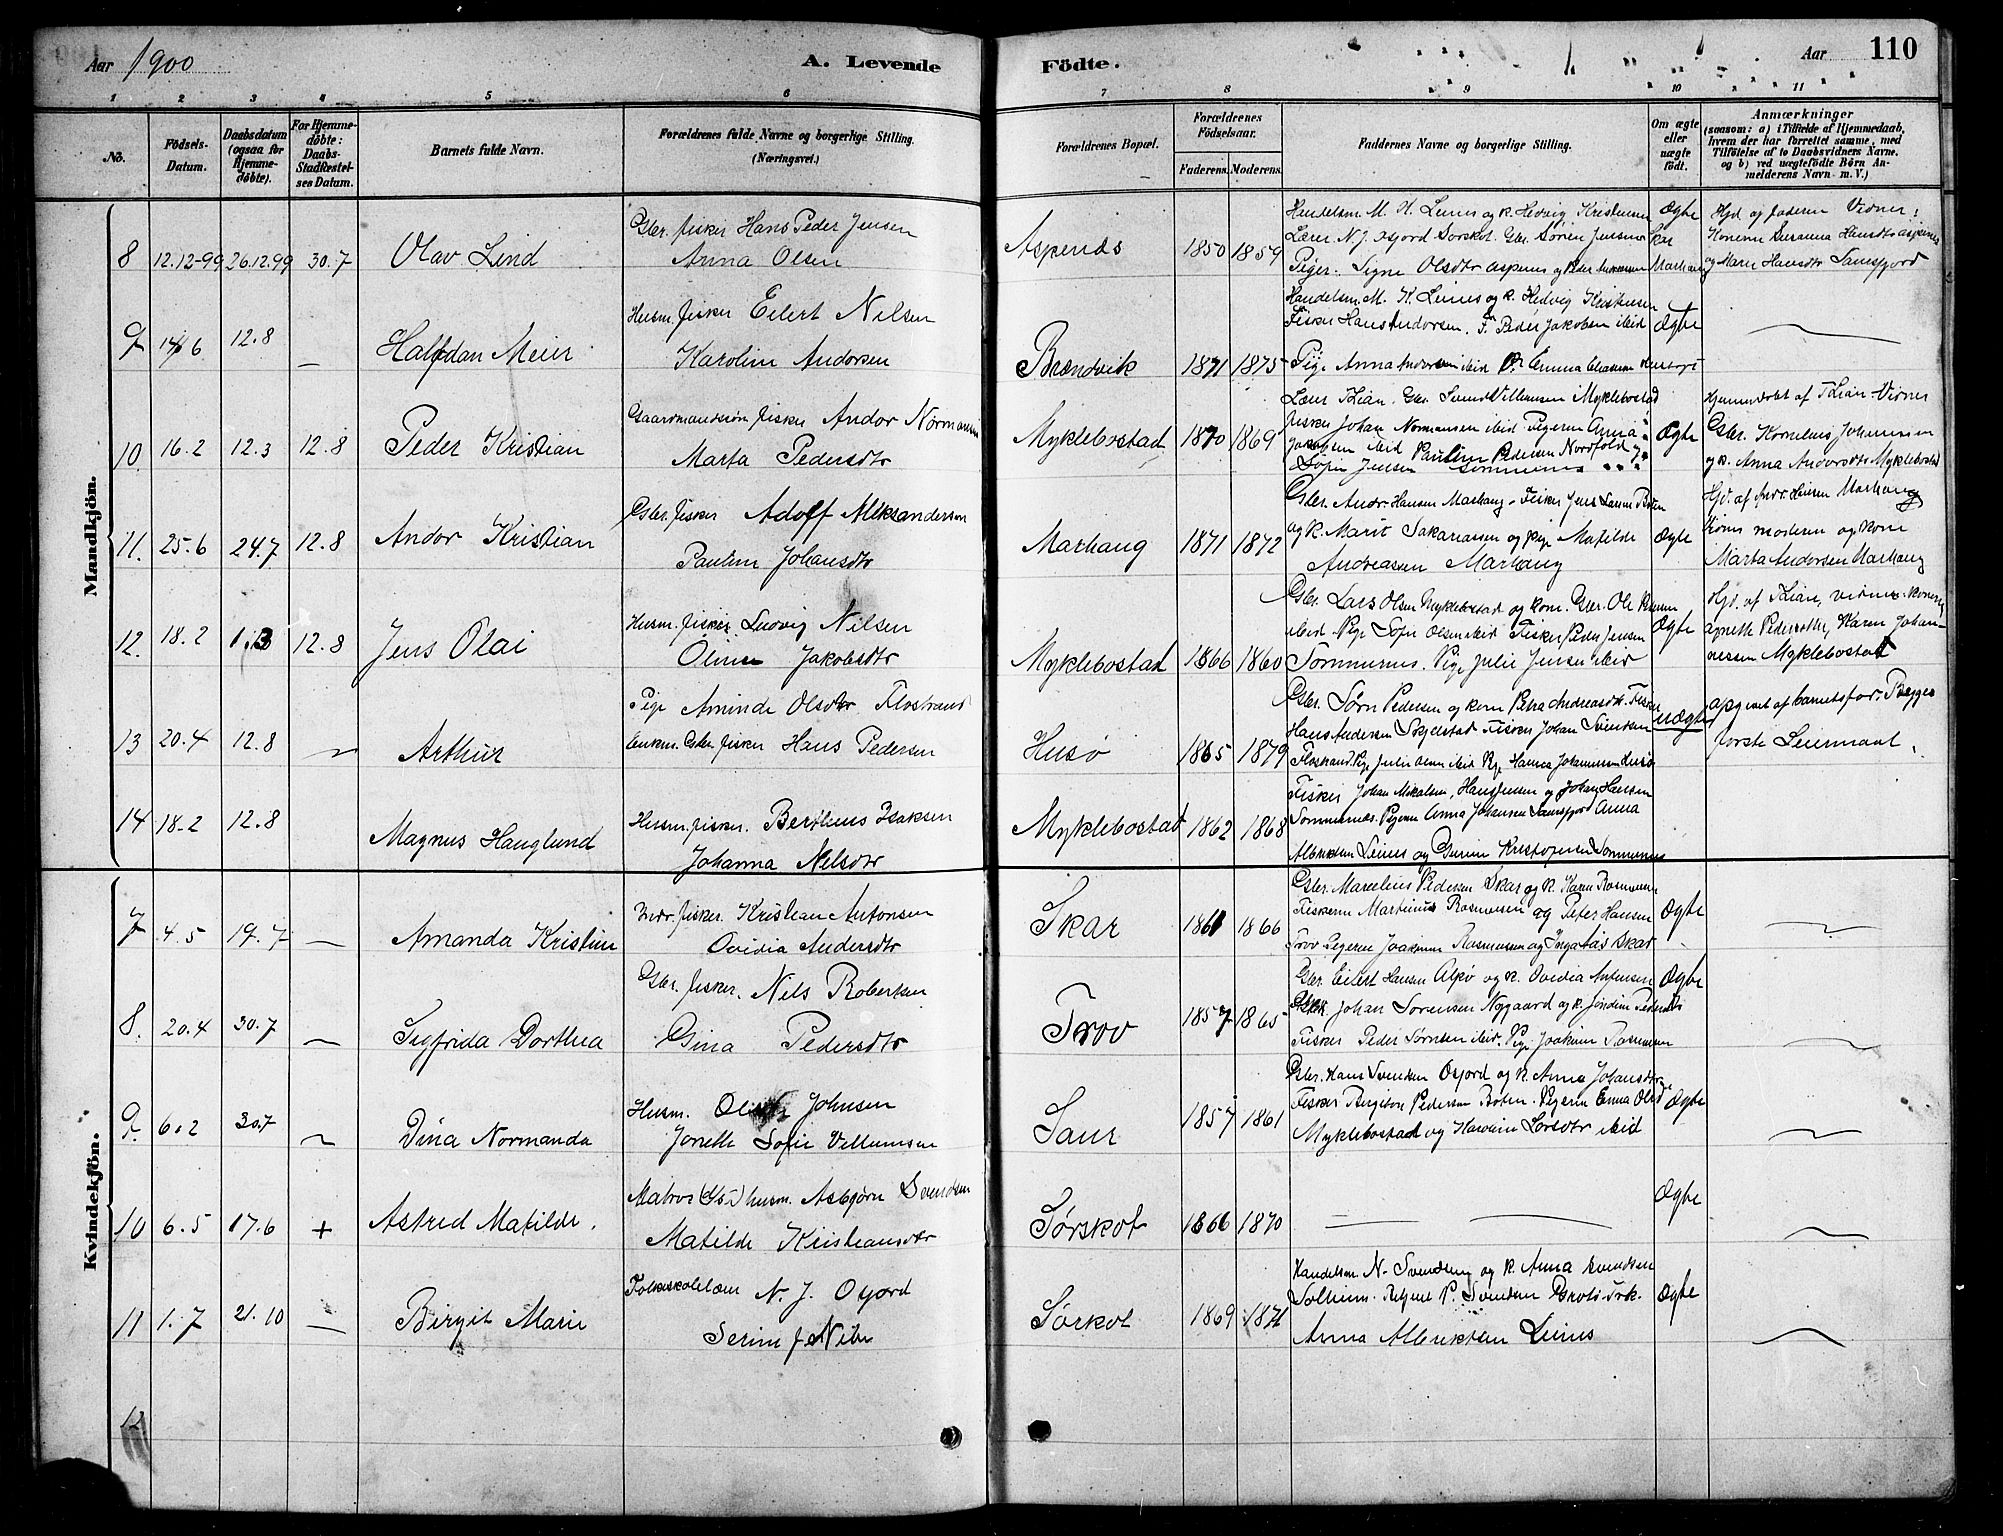 Aar 1900
A. Levende
Födte.
Aar
110
1 2 3 4 5 6 7 8 9 10 11
No.
Födsels-Datum.
Daabsdatum (ogsaa for Hjemme-döbte).
For Hjemme-döbte: Daabs-Stadfæstel-ses Datum.
Barnets fulde Navn.
Forældrenes fulde Navne og borgerlige Stilling.
(Næringsvei.)
Forældrenes Bopæl.
Forældrenes Födselsaar.
Faderens. Moderens.
Faddernes Navne og borgerlige Stilling.
Om ægte eller uægte födt.
Anmærkninger
(saasom: a) i Tilfælde af Hjemmedaab,
hvem der har forrettet samme, med
Tilföielse af to Daabsvidners Navne.
og b) ved uægtefödte Börn An-
melderens Navn m. V.)
Mandkjön.
8 12.12-99 26.12.99 30.7 Olav Lind
Gbr. fisker Hans Peder Jensen
Anna Olsen
Aspenæs 1850 1859
Handelsm. M. H. Leines og k. Hedvig Kristensen
Lærer N. J. Osfjord Sørskot. Gbr. Søren Jensen Skar
Piger. Signe Olsdtr Aspenes og
Ægte
Hjd. af faderen Vidner:
Konerne Susanna Hansdtr Aspenes
og Marie Hansdtr Saursfjord
9 14/6 12.8 — Halfdan Meier
Husm. fisker Eilert Nilsen
Karolin Andorsen
Brændvik 1871 1875
Handelsm. M. K. Leines og k. Hedvig Kristensen
Fisker Hans Andorsen. F. Peder Jakobsen ibid
Pige Anna Andorsen ibid P. Emma
Ægte
10 16.2 12.3 12.8 Peder Kristian
Gaardmandssøn fisker Andor Normansen
Marta Pedersdtr
Myklebostad 1870 1869
Lærer T Lian. Gbr. Svend Villumsen Myklebostad
fisker Johan Normansen ibid Pigerne Anna
Jakobsen ibid Pauline Pedersen Nordfold
Sofie Jensen Sommernes
Ægte
Hjemmedøbt af T Lian Vidner
Gbr. Kornelius Johannesen
og k. Anna Andorsdtr Myklebostad
11. 25.6 24.7 12.8 Andor Kristian
Gbr. fisker Adolf Aleksandersen
Pauline Johansdtr
Marhaug 1871 1872
Gbr. Andr. Hansen Marhaug. Fisker Jens Larsen Bøten
og k. Marit Sakariassen og pige Matilde
Andreassen Marhaug
Ægte
Hjd. af Andr. Hansen Marhaug
moderen og kone
Marta Andorsen Marhaug
12. 18.2 1.3 12.8 Jens Olai
Husm. fisker Ludvig Nilsen
Oline Jakobsdtr
Myklebostad 1866 1860
Gbr. Lars Olsen Myklebostad og kone. Gbr. Ole
ibid. Pige Sofie Olsen ibid Fisker Peder Jensen
Sommernes. Pige Julie Jensen ibid
Ægte
Hjd. af T Lian, vidner konerne
Agnette Pedersdtr, Karen Johan-
nessen Myklebostad
13 20.4 12.8 — Arthur
Pige Aminda Olsdtr Flostrand
Enkm. Gbr. fisker Hans Pedersen
Husø 1865 1879
Gbr. Sørn Pedersen og kone Petra Andreasdtr. Fisker
Hans Andersen Sogelstad Fisker Johan Svendsen
Flostrand. Pige Julie Olsen ibid Pige Hanna Johannessen Husø
uægte
opgivet af barnets far. Begges
første Leiermaal.
14 18.2 12.8 Magnus Hauglund
Husm. fisker. Bertheus Isaksen
Johanna Nelsdtr
Myklebostad 1862 1868
Fisker Johan Mikalsen, Hans Jensen og Johan Hansen
Sommernes. Pigerne Anna Johansen Saursfjord Anna
Albriktsen Leines og Gurine Kristofersen Sommernes
Kvindekjön.
7 4.5 19.7 — Amanda Kristine
Indr. fisker. Kristian Antonsen
Ovidia Andersdtr
Skar 1861 1866
Gbr. Marcelius Pedersen Skar og k. Karen Rasmussen
Fiskerne Martinus Rasmussen og Peter Hansen
Trov Pigerne Joakime Rasmussen og Skar
Ægte
8. 20.4 30.7 — Sigfrida Dorthea
Gbr. fisker. Nils Robertsen
Gina Pedersdtr
Trov 1857 1865
Gbr. Eilert Hansen Alpø og k. Ovidia Antonsen
Gbr. Johan Sørensen Nygaard og k. Jendine Pedersdtr
Fisker Peder Sørnsen ibid. Pige Joakime Rasmussen
Ægte
9. 6.2 30.7 — Dina Normanda
Husm. Johnsen
Jonette Sofie Villumsen
Saur 1857 1861
Gbr. Hans Svendsen Osfjord og k. Anna Johansdtr
Fisker Birgiton Pedersen Bøten. Pigerne Emma Olsd
Myklebostad og Karoline Larsdtr ibid
Ægte
10 6.5 17.6 + Astrid Matilde.
Matros (& ) husm. Asbjørn Svendsen
Matilde Kristiansdtr
Sørskot 1866 1870
Ægte
11 1.7 21.10 — Birgit Marie
Folkeskolelærer N. J. Osfjord
Serine J.
Sørskot 1869 1871
Handelsm. N. Svendsen og k. Anna Svendsen
Solheim. P. Svendsen
Anna Albriktsen Leines
Ægte
12